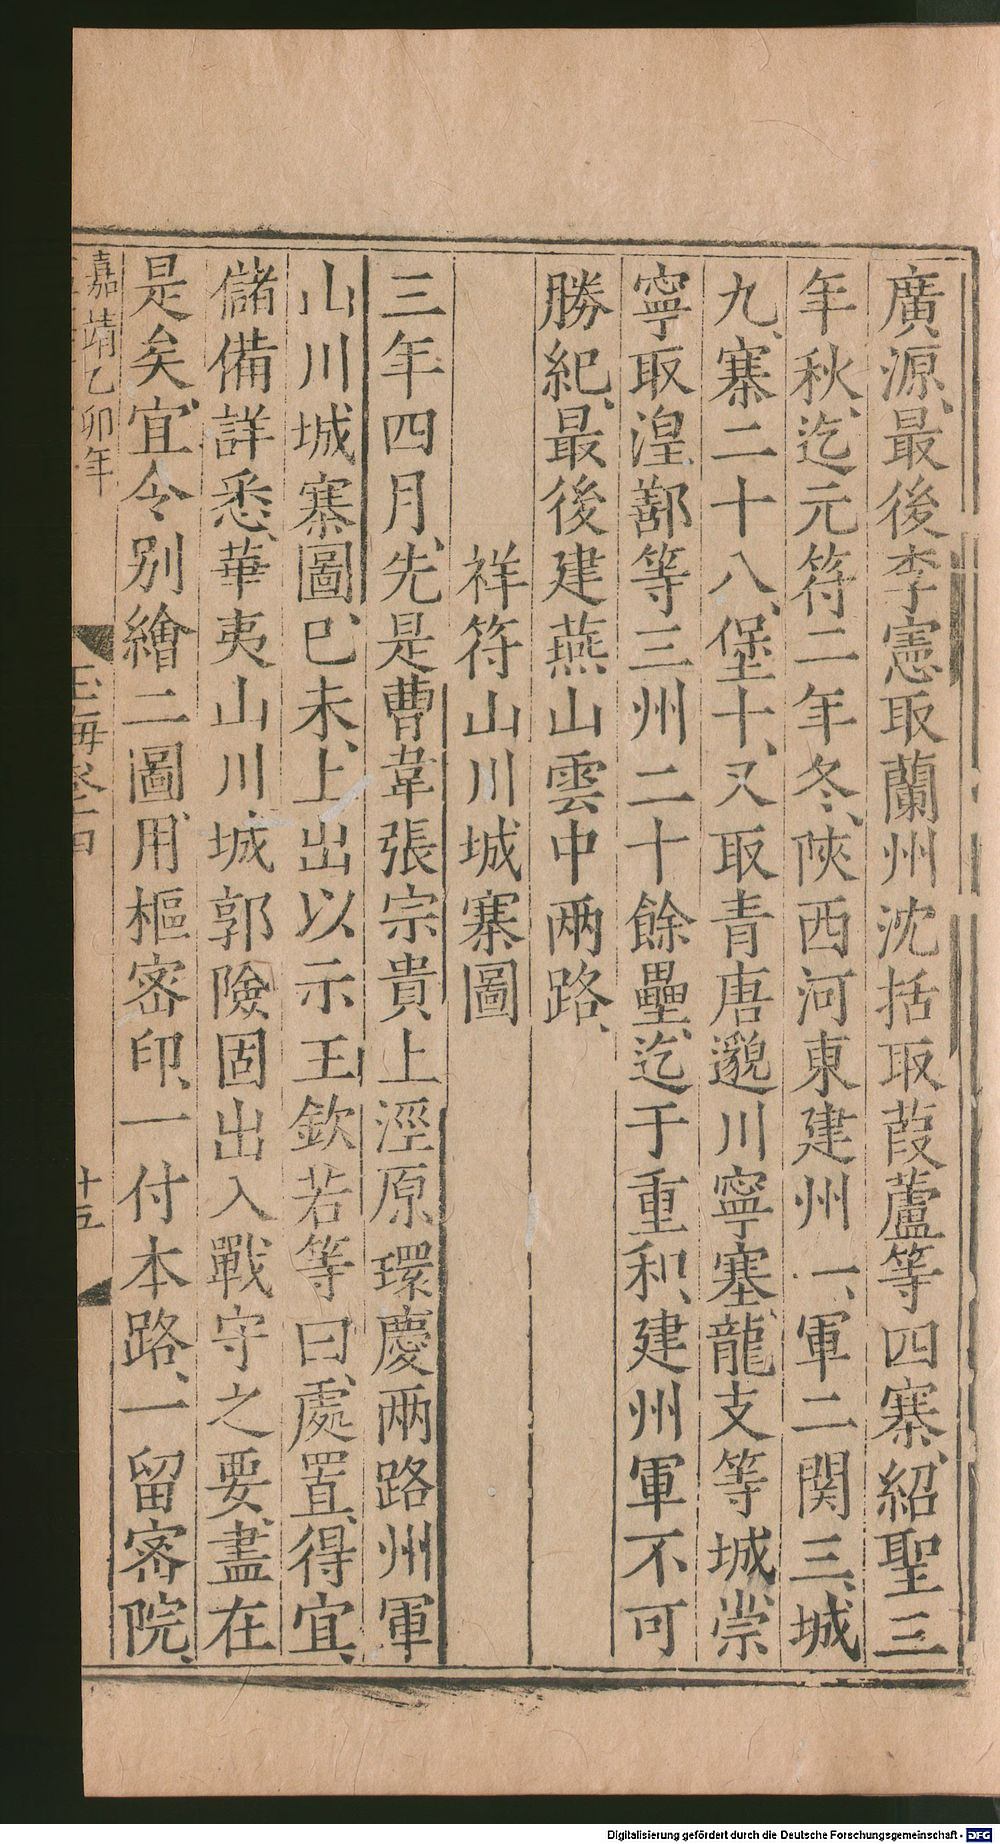 廣源、最後李憲取蘭州沈括取葭蘆等四寨、紹聖三
年秋、迄元符二年冬、陝西河東建州一、軍二関三、城
九、寨二十八、堡十、又取青唐邈川寧塞龍支等城、崇
寧取湟鄯等三州二十餘壘、迄于重和、建州軍不可
勝紀、最後建燕山雲中兩路、
祥符山川城寨圖
三年四月、先是曹瑋張宗貴上涇原環慶兩路州軍
山川城寨圖、己未、上出以示王欽若等曰、處置得宜、
儲備詳悉、華夷山川、城郭險固出入戰守之要、盡在
是矣、宜令別繪二圖、用樞密印、一付本路、一留密院、
嘉靖乙卯年
玉海卷十四
十五
Digitalisierung gefördert durch die Deutsche Forschungsgemeinschaft - DFG